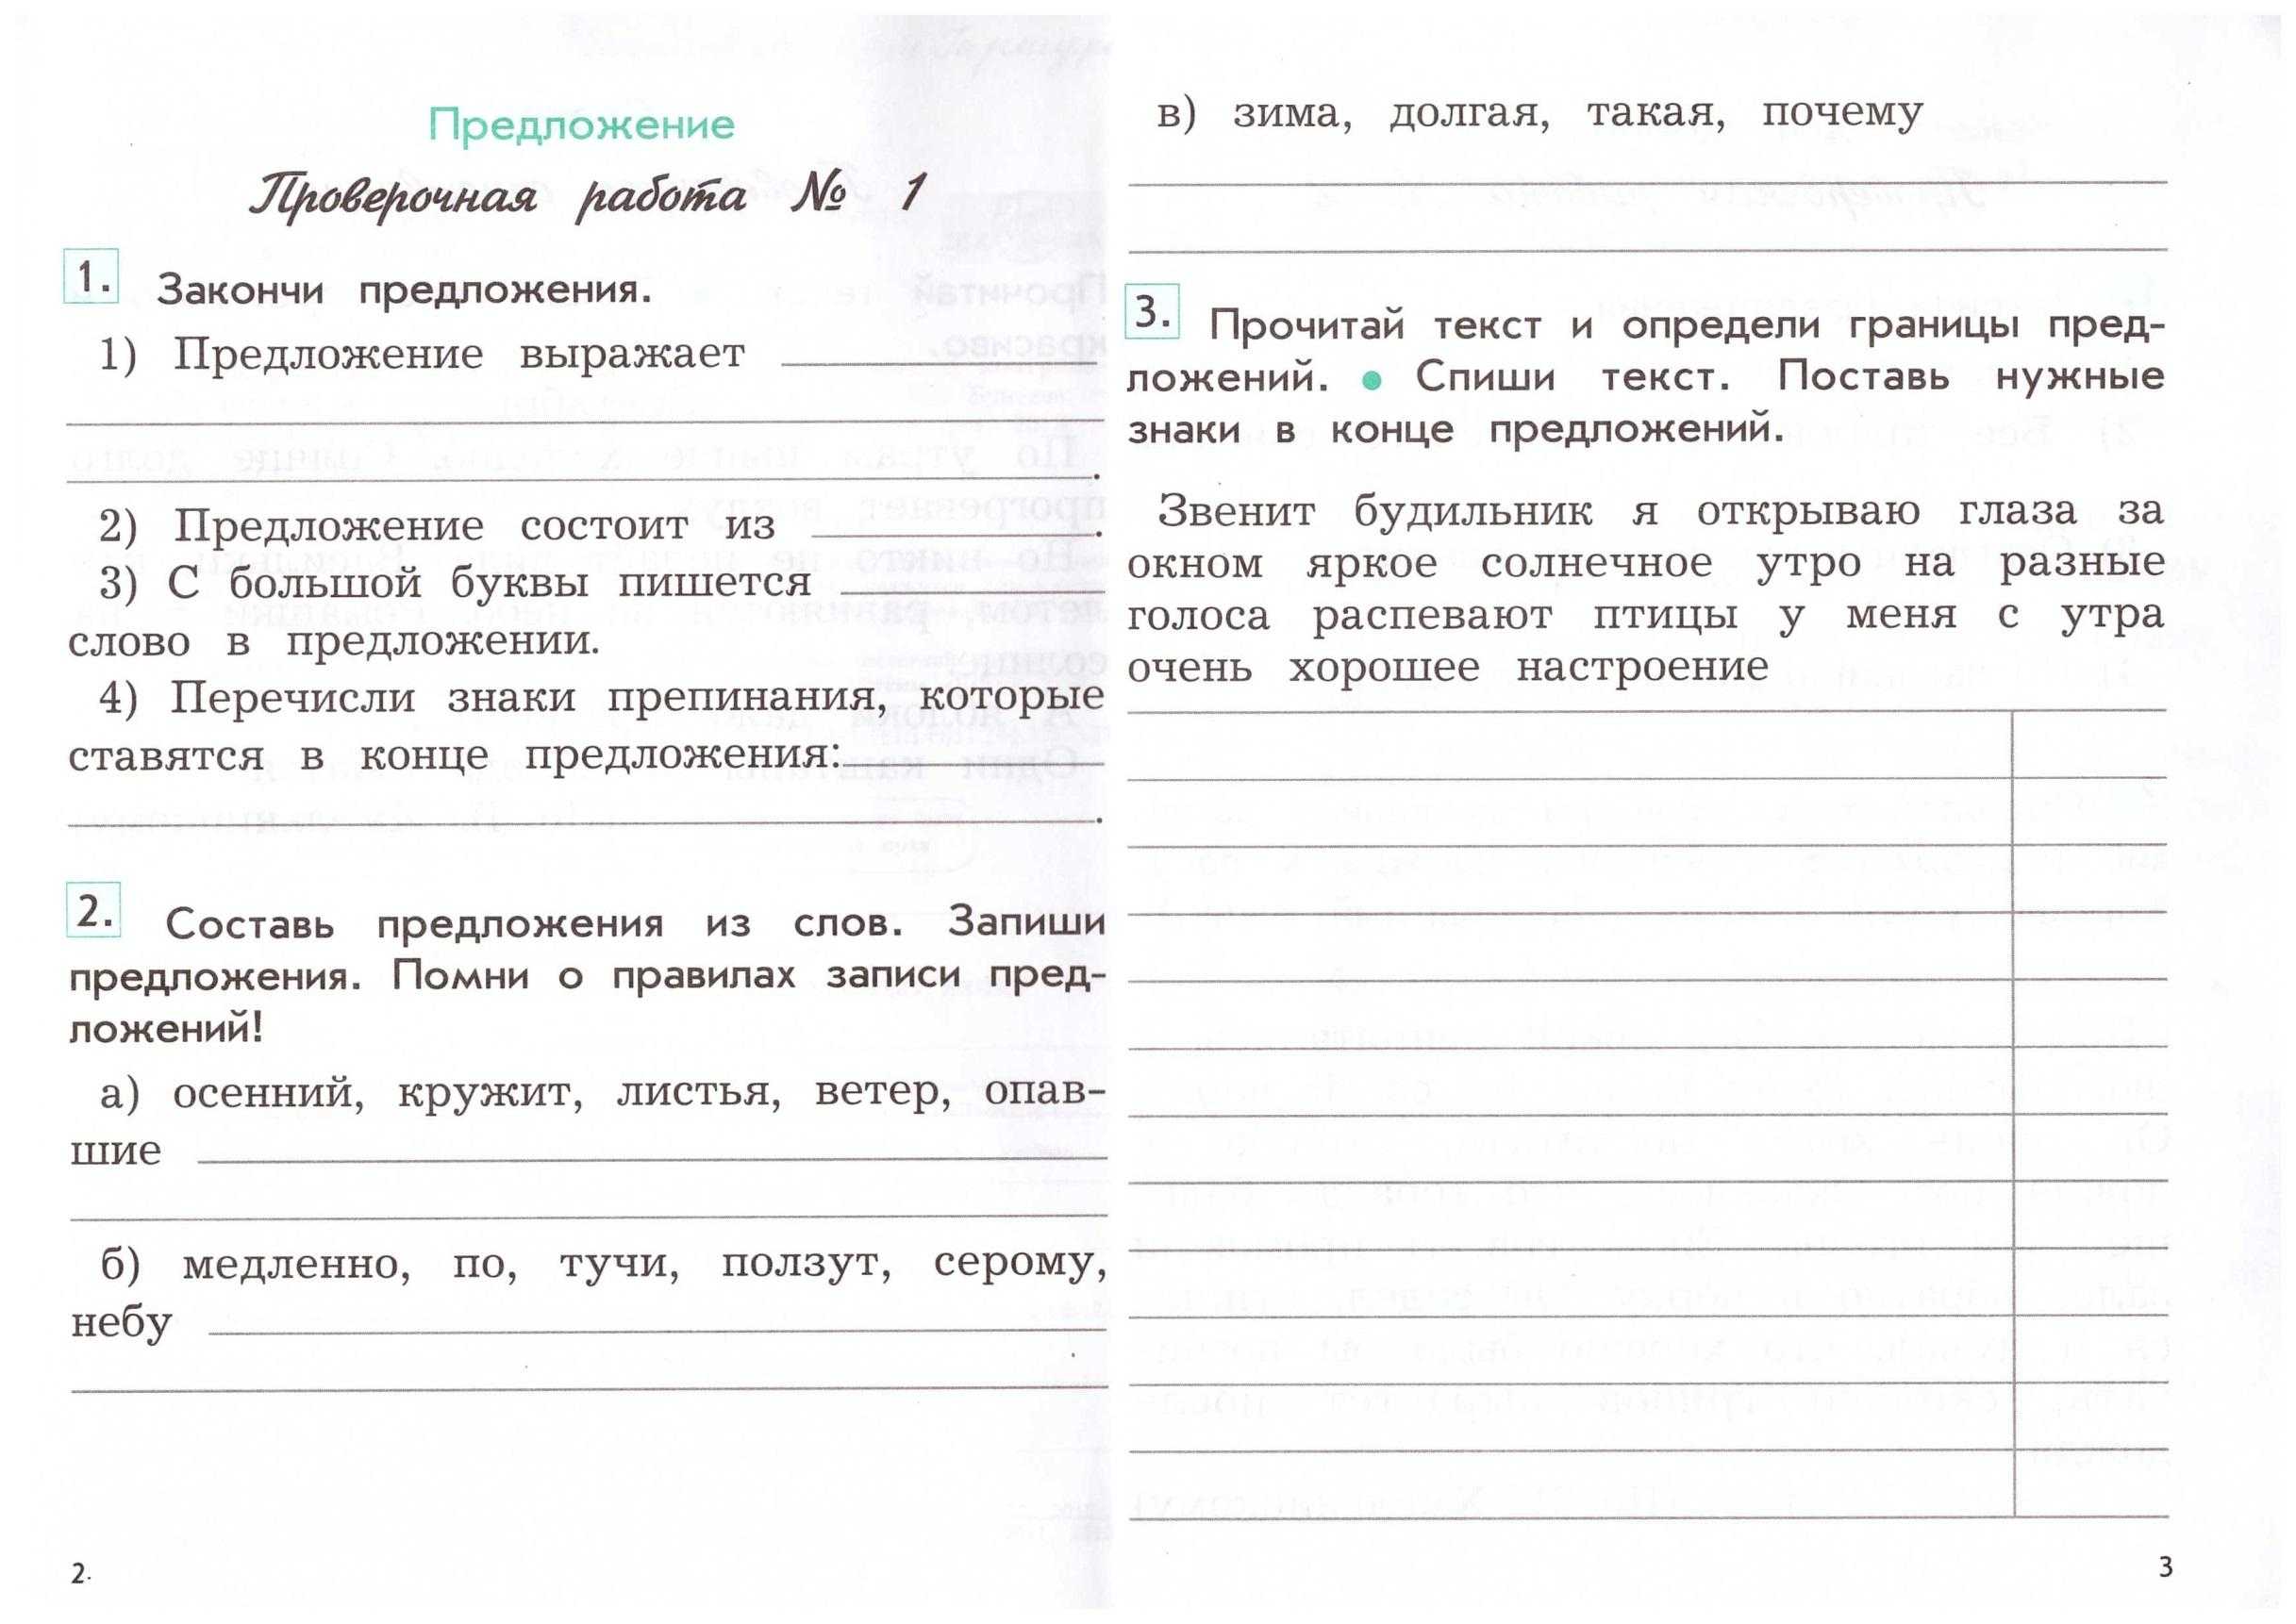 Предложение
Проверочная работа № 1
1. Закончи предложения.
1) Предложение выражает
.
2) Предложение состоит из .
3) С большой буквы пишется
слово в предложении.
4) Перечисли знаки препинания, которые
ставятся в конце предложения:
.
2. Составь предложения из слов. Запиши
предложения. Помни о правилах записи пред-
ложений!
а) осенний, кружит, листья, ветер, опав-
шие
б) медленно, по, тучи, ползут, серому,
небу
2
в) зима, долгая, такая, почему
3. Прочитай текст и определи границы пред-
ложений. ● Спиши текст. Поставь нужные
знаки в конце предложений.
Звенит будильник я открываю глаза за
окном яркое солнечное утро на разные
голоса распевают птицы у меня с утра
очень хорошее настроение
3